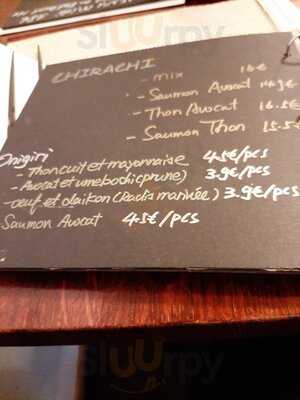 CHIRACHI
- mix 16€
- Saumon Avocat 14.9€
- Thon Avocat 16.5€
- Saumon Thon 15.5
Onigiri
- Thon cuit et mayonnaise 4.5€/pcs
- Avocat et umeboshi(prune) 3.9€/pcs
- oeuf et daikon (Radis marinée) 3.9€/pcs
Saumon Avocat 4.5€/pcs
sluurpy
sluurpy